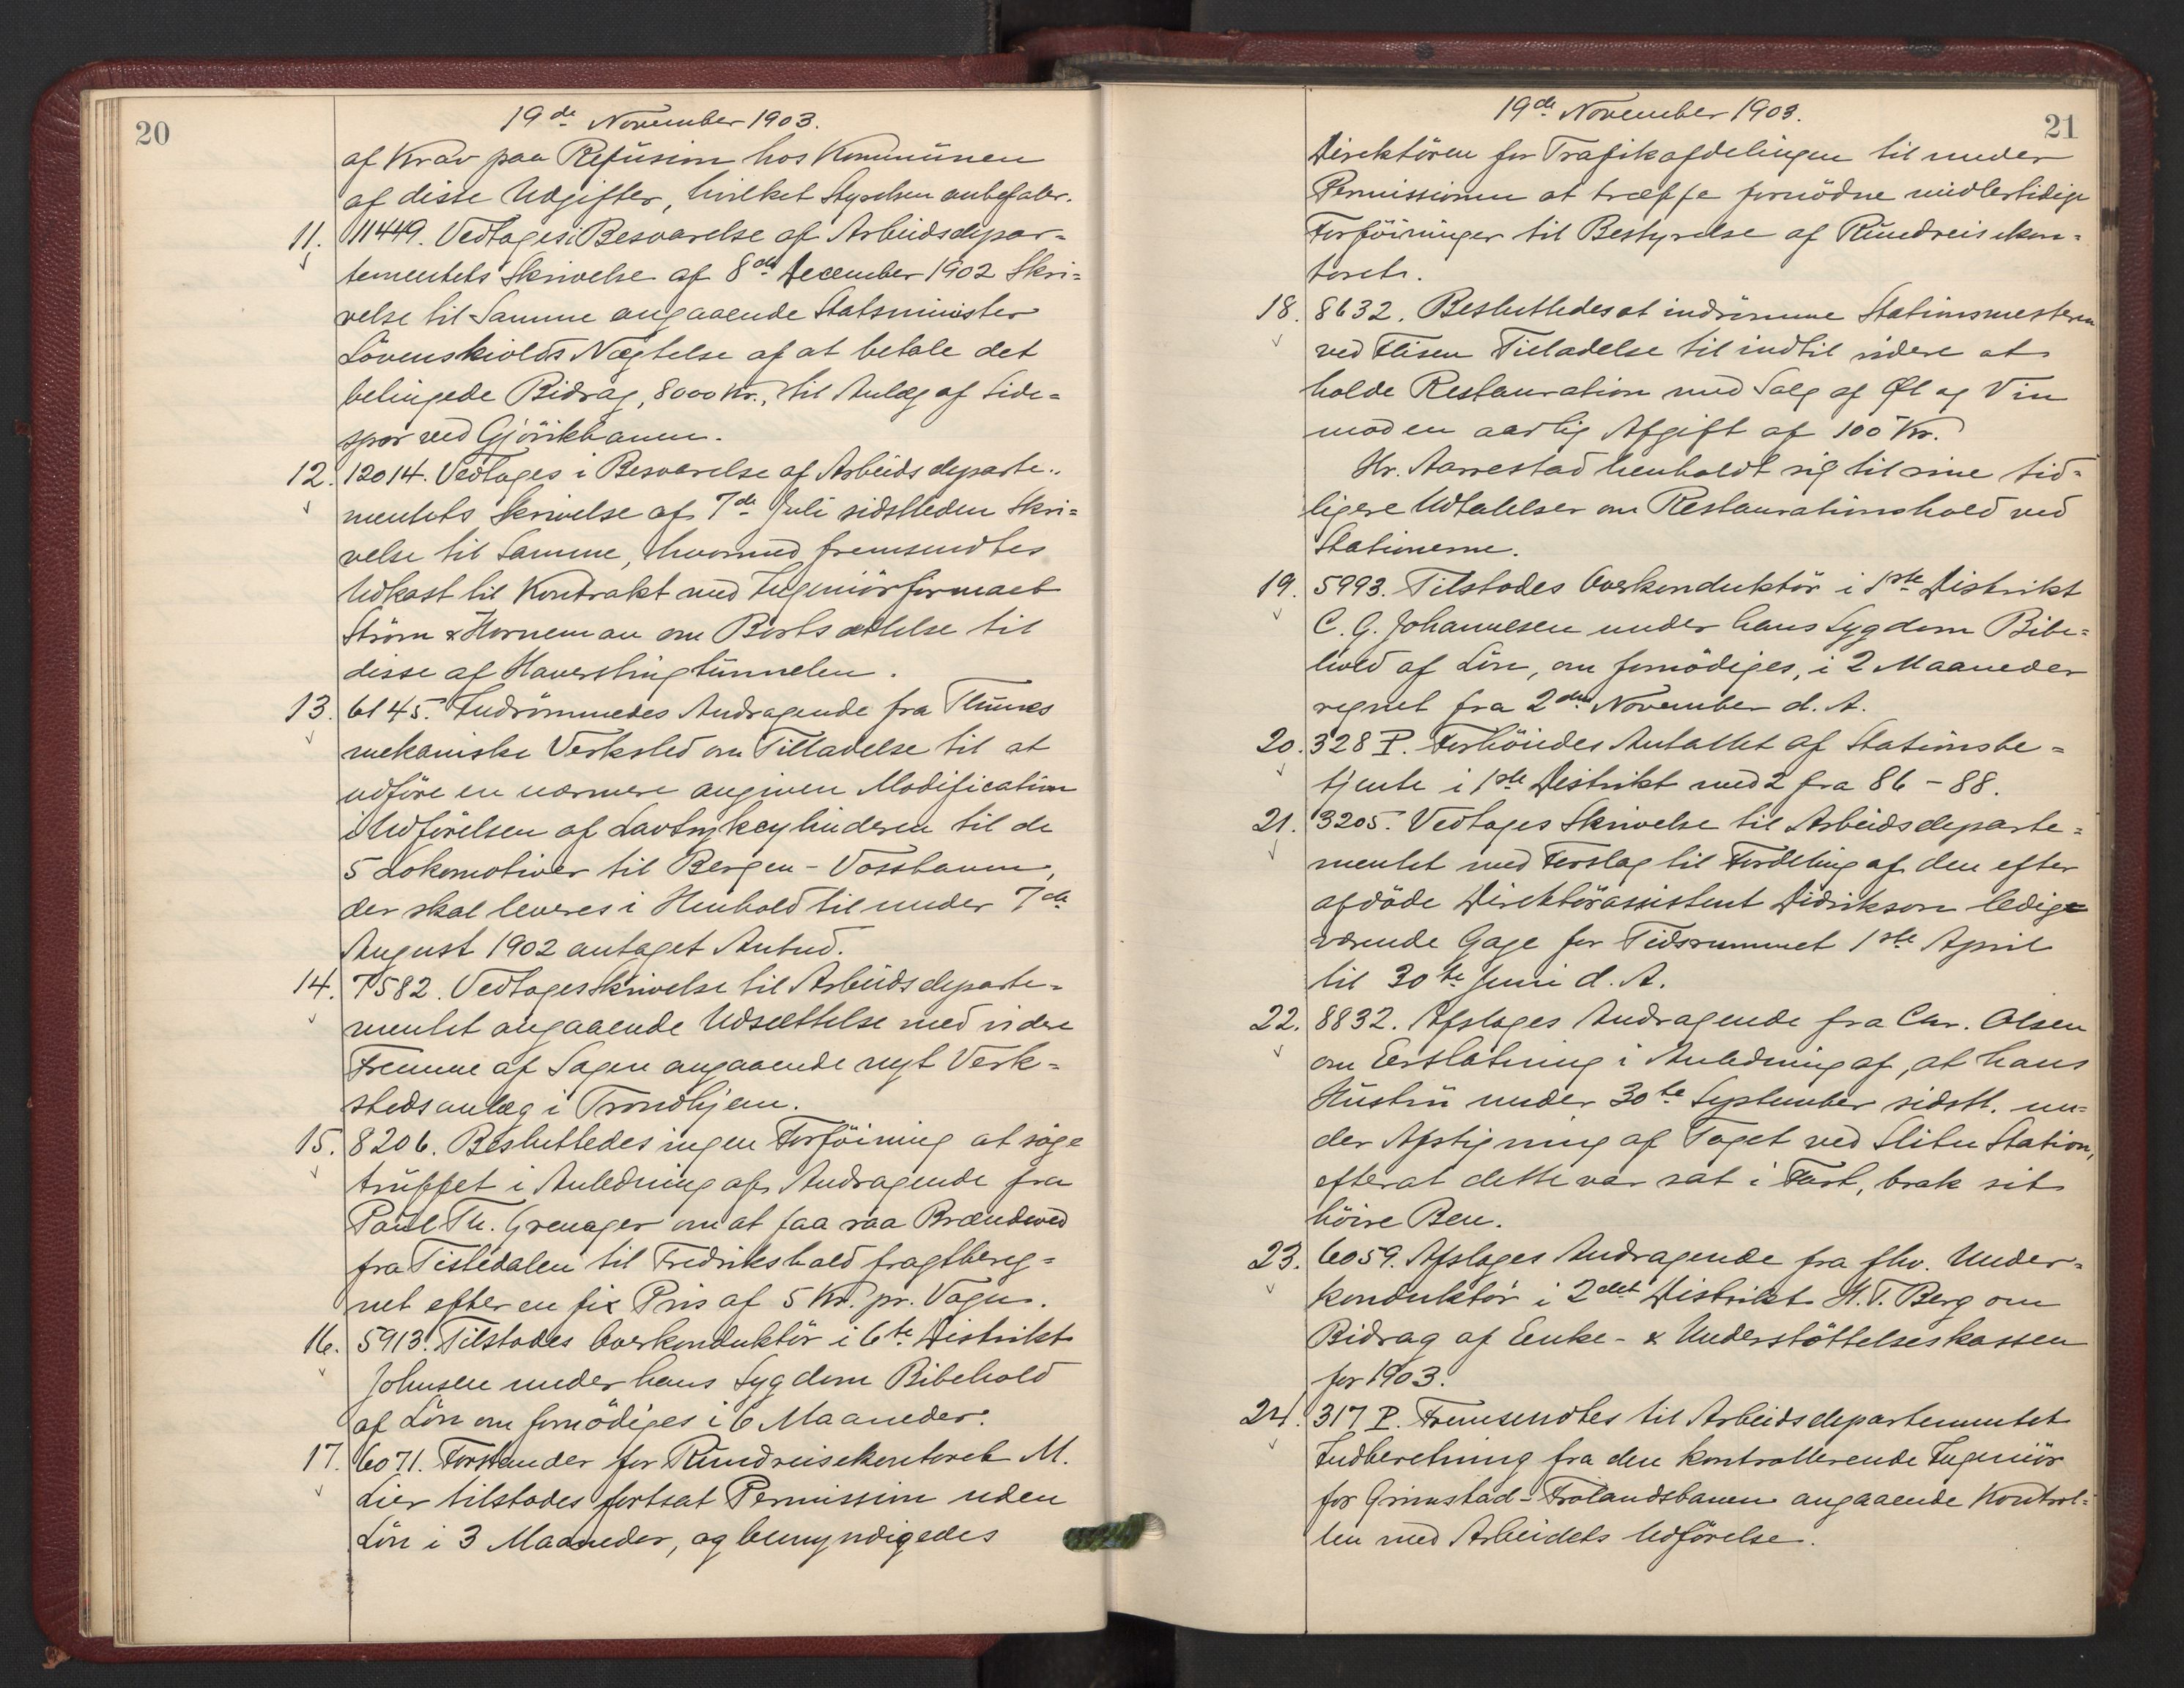 20
19de November 1903.
af Krav paa Refusion hos Kommunen
af disse Udgifter, hvilket Styrelsen anbefaler.
11. 11449. Vedtoges i Besvarelse af Arbeidsdepar=
tementets Skrivelse af 8de December 1902 Skri=
velse til Samme angaaende Statsminister
Lövenskiolds Nægtelse af at betale det
betingede Bidrag, 8000 Kr., til Anlæg af Side=
spor ved Gjövikbanen.
12. 12014. Vedtoges i Besvarelse af Arbeidsdeparte=
mentets Skrivelse af 7de Juli sidstleden Skri=
velse til Samme, hvormed fremsendtes
Udkast til Kontrakt med Ingeniörfirmaet
Ström & Horneman om Bortsættelse til
disse af Haverstingtunnelen.
13. 6145. Indrömmedes Andragende fra Thunes
mekaniske Verksted om Tilladelse til at
udföre en nærmere angiven Modification
i Udförelsen af Lavtrykcylinderen til de
5 Lokomotiver til Bergen-Vossbanen,
der skal leveres i Henhold til under 7de
August 1902 antaget Anbud.
14. 7582. Vedtoges Skrivelse til Arbeidsdeparte=
mentet angaaende Udsættelse med videre
Fremme af Sagen angaaende nyt Verk=
stedsanlæg i Trondhjem.
15. 8206. Besluttedes ingen Forföining at söge
truffet i Anledning af Andragende fra
Paul Th. Grenager om at faa raa Brændeved
fra Tistedalen til Fredrikshald fragtbereg=
net efter en fix Pris af 5 Kr. pr. Vogn.
16. 5913. Tilstodes Overkonduktör i 6te Distrikt
Johnsen under hans Sygdom Bibehold
af Lön om fornödiges i 6 Maaneder.
17. 6071. Forstander for Rundreisekontoret M.
Lier tilstodes fortsat Permission uden
Lön i 3 Maaneder, og bemyndigedes
21
19de November 1903.
Direktören for Trafikafdelingen til under
Permissionen at træffe fornödne midlertidige
Forföininger til Bestyrelse af Rundreisekon=
toret.
18. 8632. Besluttedes at indrömme Stationsmesteren
ved Flisen Tilladelse til indtil videre at
holde Restauration med Salg af Øl og Vin
mod en aarlig Afgift af 100 Kr.
Hr. Aarrestad henholdt sig til sine tid=
ligere Udtalelser om Restaurationshold ved
Stationerne.
19. 5993. Tilstodes Overkonduktör i 1ste Distrikt
C. G. Johannesen under hans Sygdom Bibe=
hold af Lön, om fornödiges, i 2 Maaneder
regnet fra 2den November d. A.
20. 328 P. Forhöiedes Antallet af Stationsbe=
tjente i 1ste Distrikt med 2 fra 86 - 88.
21. 3205. Vedtoges Skrivelse til Arbeidsdeparte=
mentet med Forslag til Fordeling af den efter
afdöde Direktörassistent Didrikson ledig
værende Gage for Tidsrummet 1ste April
til 30te Juni d. A.
22. 8832. Afsloges Andragende fra Chr. Olsen
om Erstatning i Anledning af, at hans
Hustru under 30te September sidstl. un=
der Afstigning af Toget ved Slitu Station,
efterat dette var sat i Fart, brak sit
höire Ben.
23. 6059. Afsloges Andragende fra fhv. Under=
konduktör i 2det Distrikt H. T. Berg om
Bidrag af Enke- & Understöttelseskassen
for 1903.
24. 317 P. Fremsendtes til Arbeidsdepartementet
Indberetning fra den kontrollerende Ingeniör
for Grimstad-Frolandsbanen angaaende Kontrol=
len med Arbeidets Udförelse.